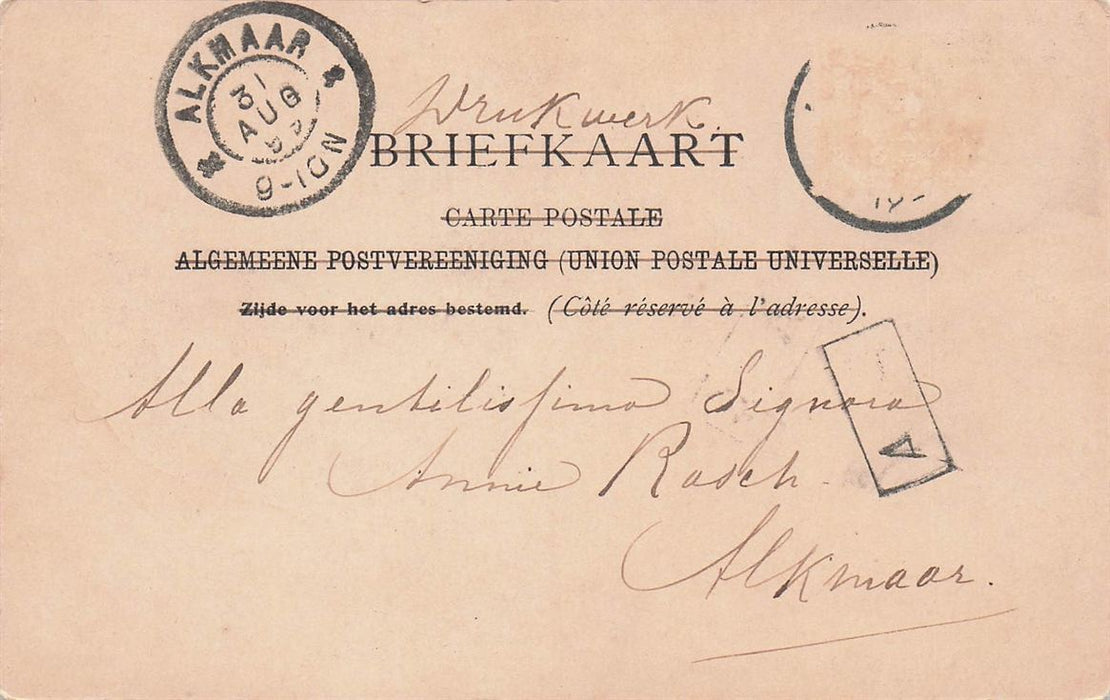 ALKMAAR
31
AUG
9-10N
Drukwerk.
BRIEFKAART
CARTE POSTALE
ALGEMEENE POSTVEREENIGING (UNION POSTALE UNIVERSELLE)
Zijde voor het adres bestemd. (Côté réservé à l'adresse).
Alla gentilissima Signora
Annie Rasch.
A
Alkmaar.